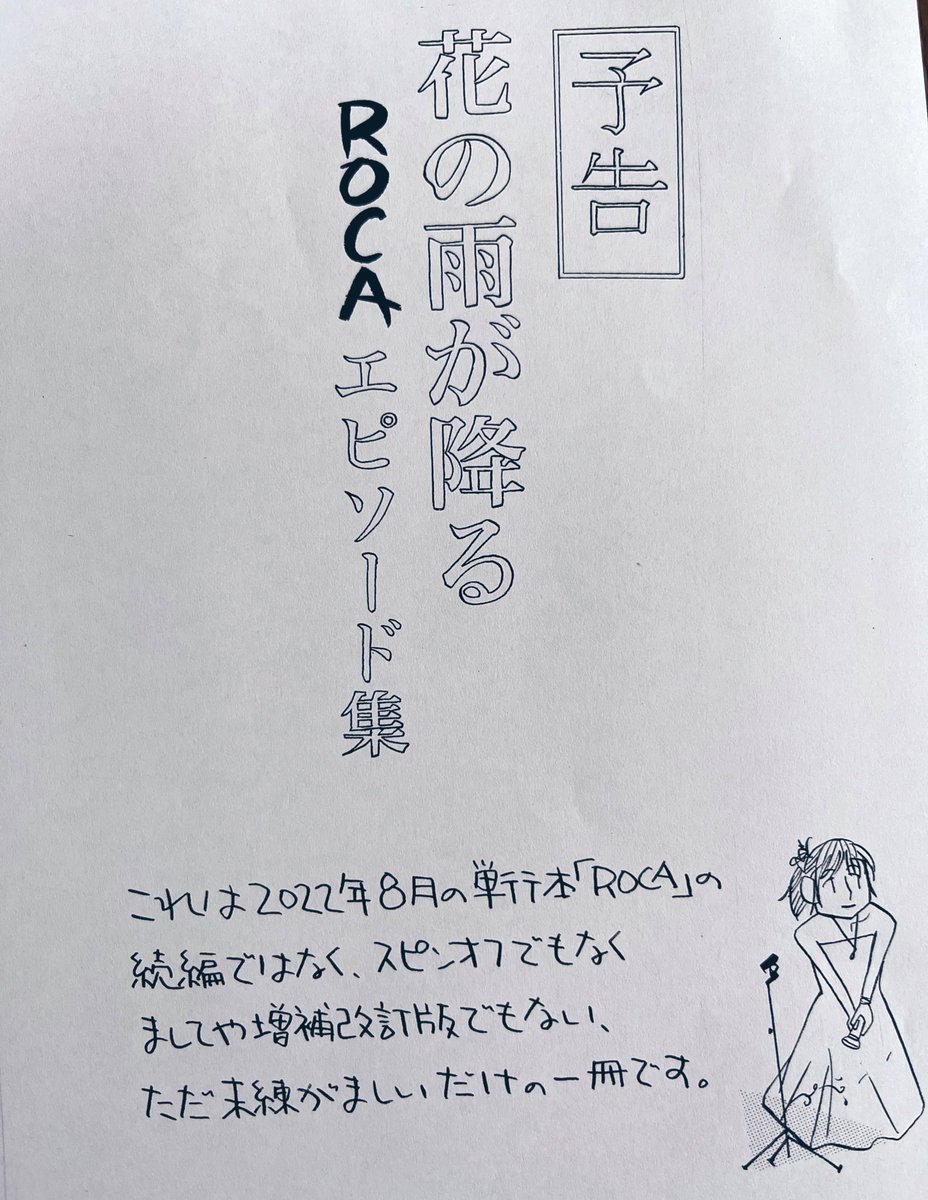 予告
花の雨が降る
ROCA エピソード集
これは2022年8月の単行本「ROCA」の
続編ではなく、スピンオフでもなく
ましてや増補改訂版でもない、
ただ未練がましいだけの一冊です。